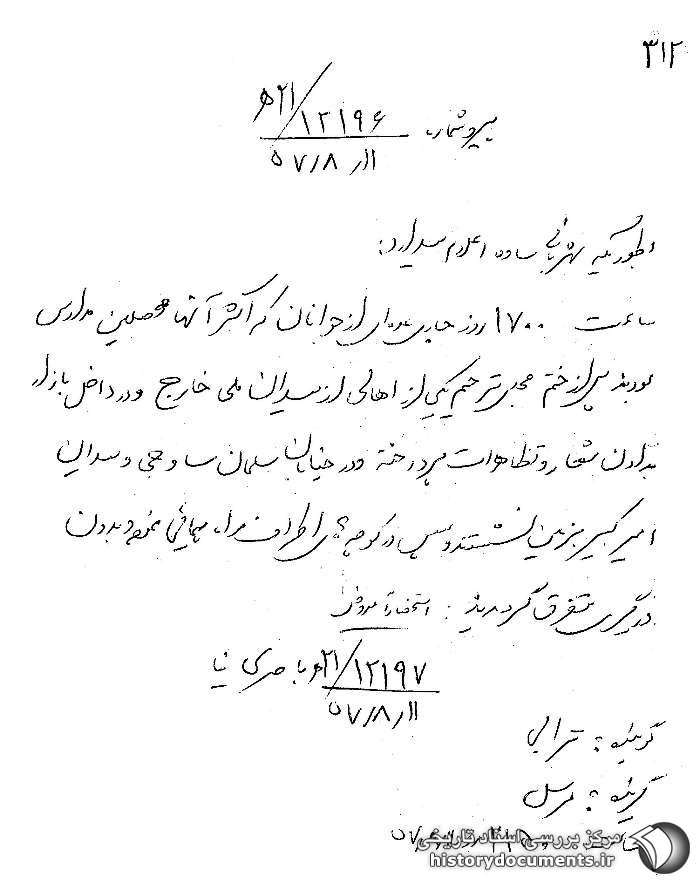 ۳۱۲
پیرو شماره ۱۲۱۹۶/۲۱ه
۵۷/۸/۱۱
بطوریکه شهربانی ساوه اعلام میدارد:
ساعت ۱۷۰۰ روز جاری عده‌ای از جوانان که اکثر آنها محصلین مدارس
بودند پس از ختم مجلس ترحیم یکی از اهالی از میدان ملی خارج و در داخل بازار
بدادن شعار و تظاهرات پرداخته و در خیابان سلمان ساوجی و میدان
امیرکبیر بزمین نشستند و سپس در کوچه‌های اطراف راه پیمائی نموده و بدون
درگیری متفرق گردیدند.
۱۲۱۹۷/۲۱ه
۵۷/۸/۱۱
گیرنده:
گیرنده:
مرکز بررسی اسناد تاریخی
historydocuments.ir